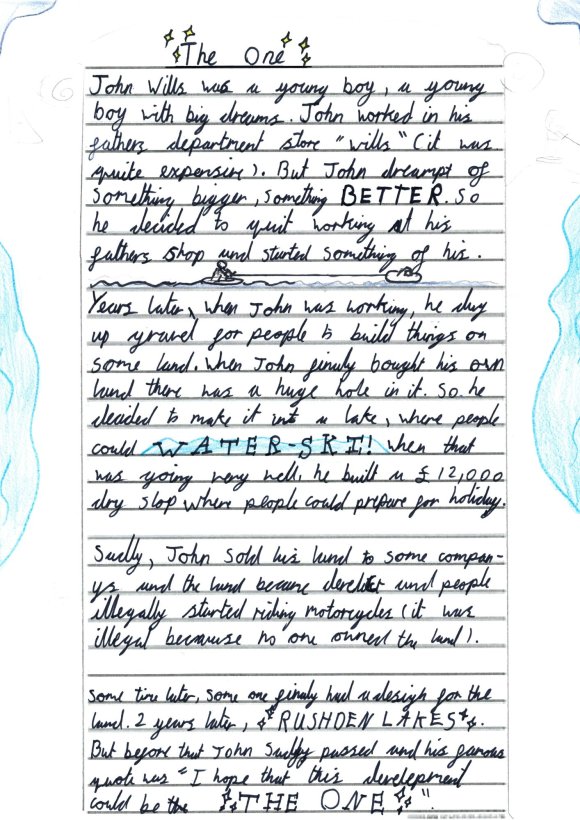 The One
John Wills was a young boy, a young
boy with big dreams. John worked in his
fathers department store "wills" (it was
quite expensive). But John dreampt of
something bigger, something BETTER. So
he decided to quit working at his
fathers shop and started something of his.
Years later, when John was working, he dug
up gravel for people to build things on
some land. When John finaly bought his own
land there was a huge hole in it. So he
decided to make it into a lake, where people
could WATER-SKI! When that
was going very well, he built a £12,000
dry slop where people could prepare for holiday.
Sadly, John sold his land to some compan-
ys and the land became derelict and people
illegally started riding motorcycles (it was
illegal becuause no one owned the land).
Some time later, some one finaly had a design for the
land. 2 years later, RUSHDEN LAKES.
But before that John Sadly passed and his famous
quote was "I hope that this develepment
could be the THE ONE".